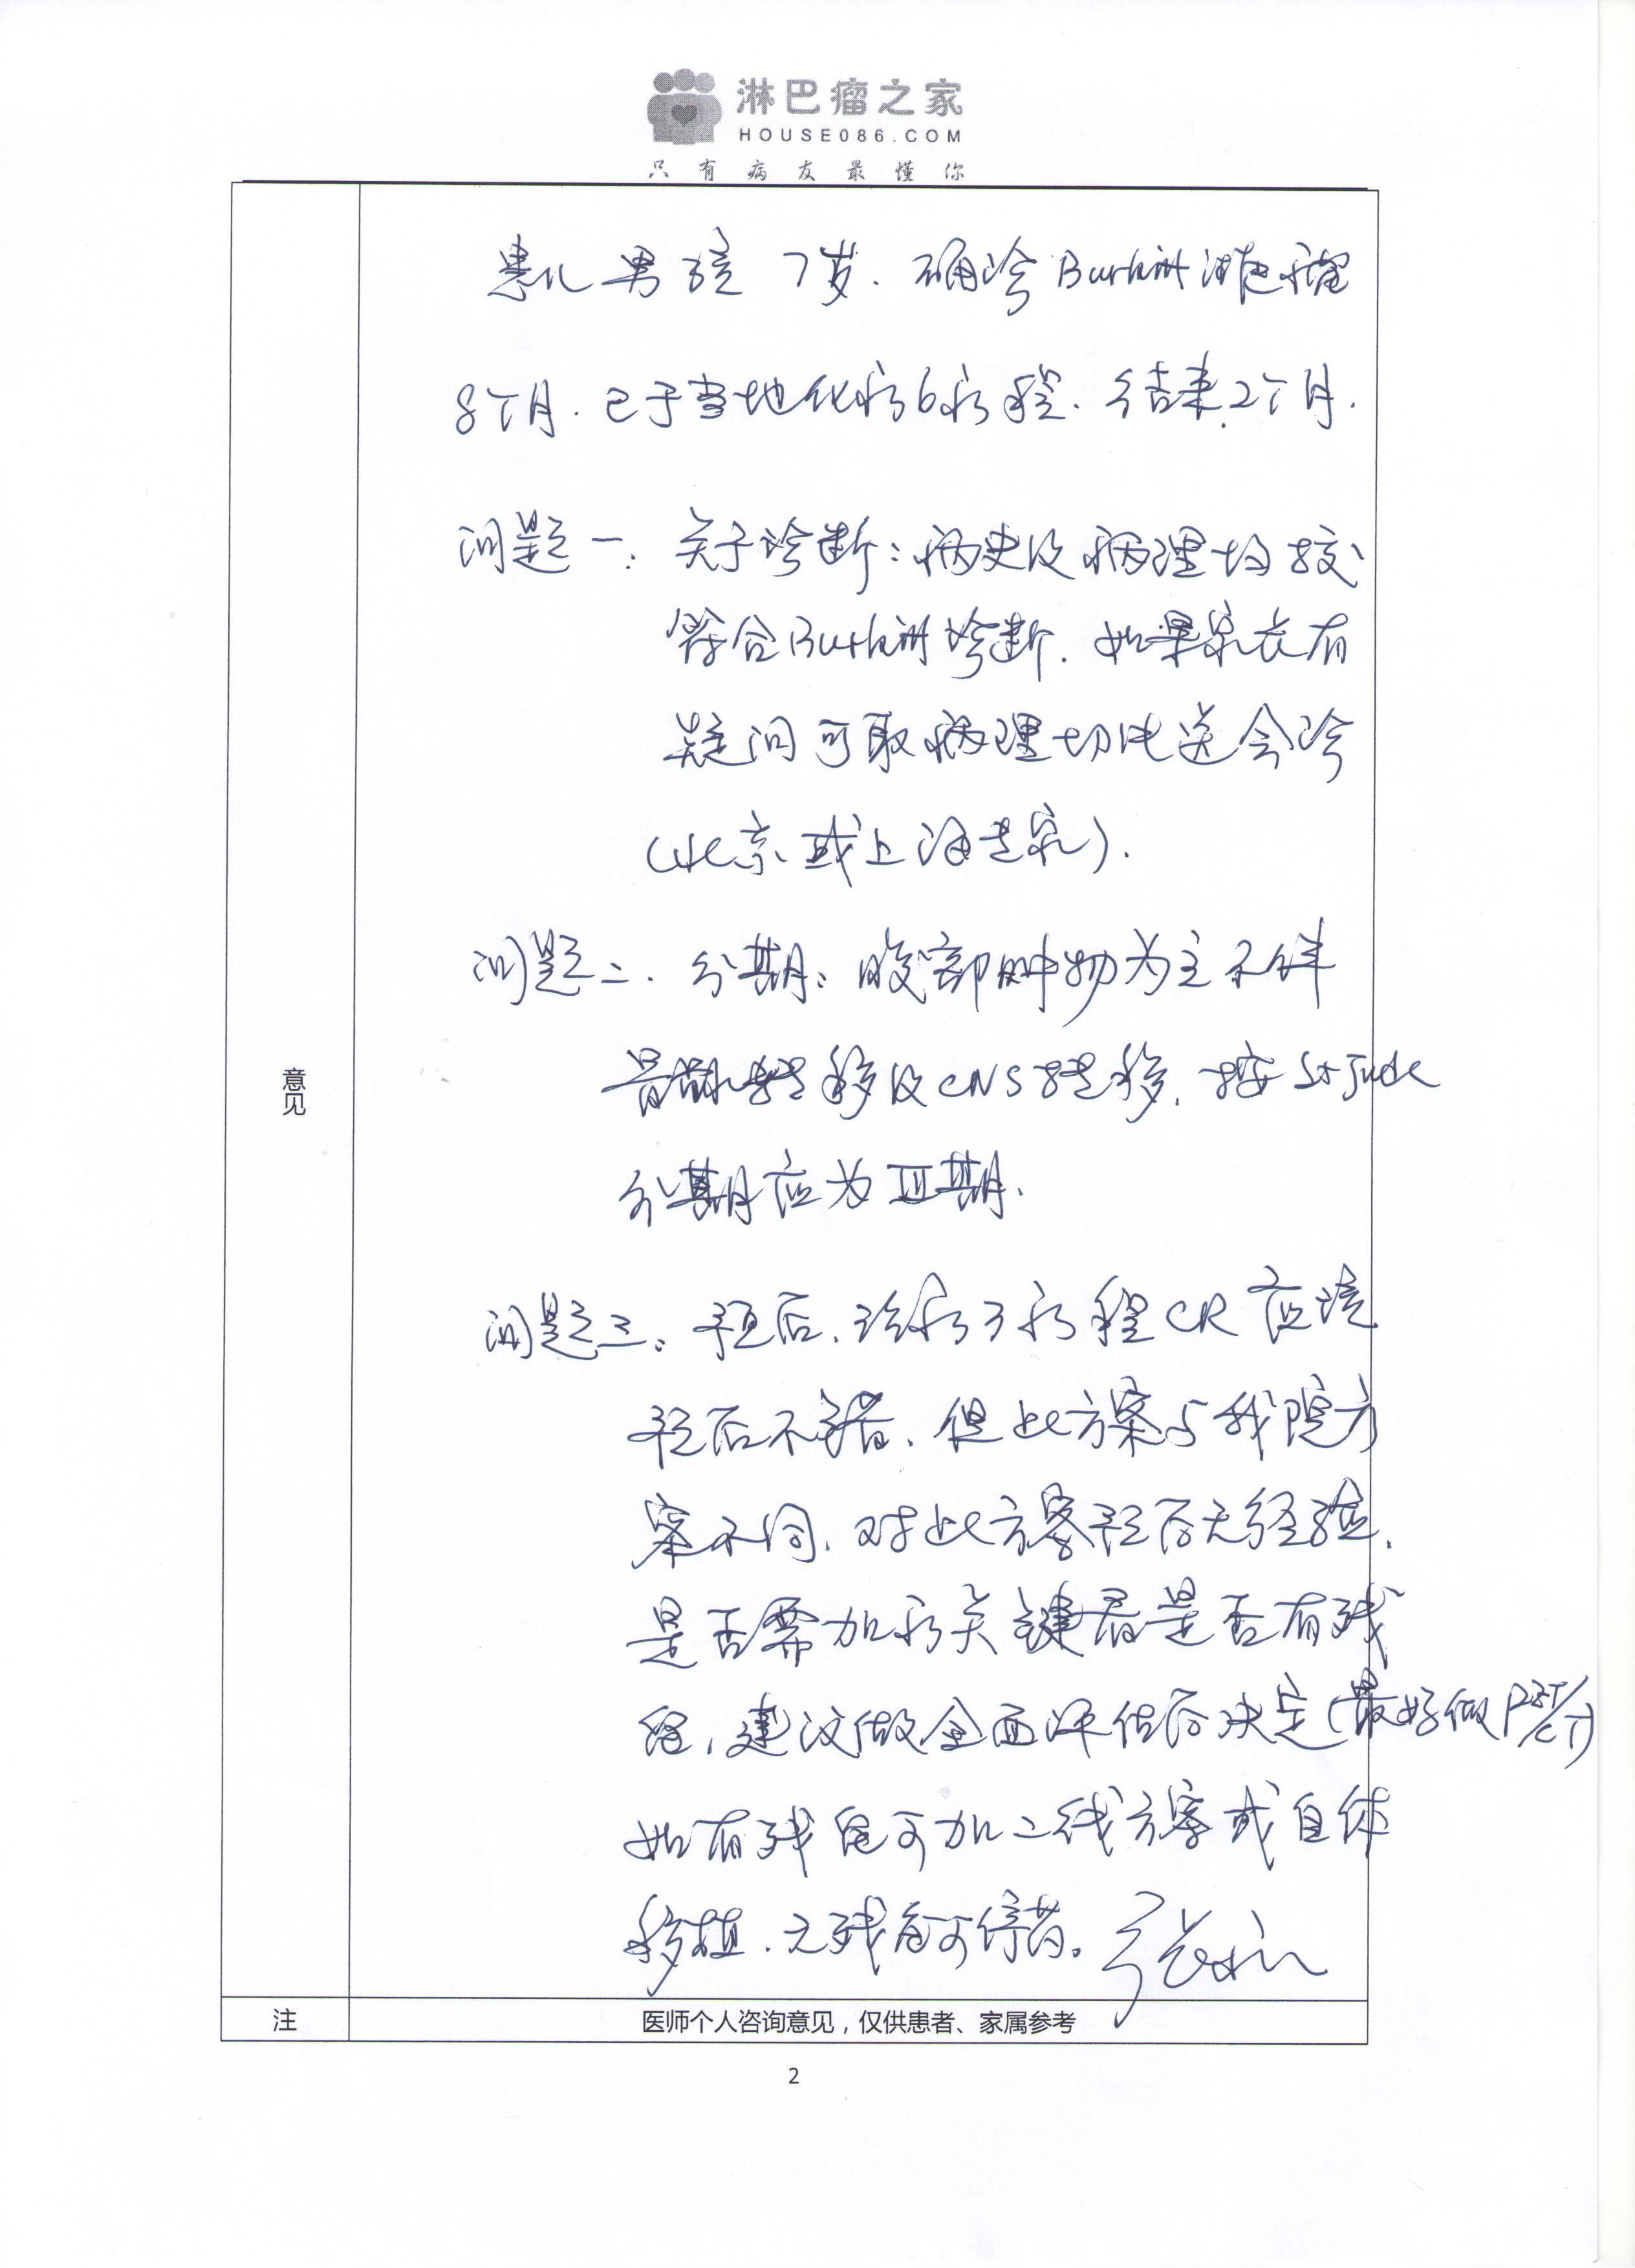 淋巴瘤之家
HOUSE086.COM
只有病友最懂你
患儿男孩 7岁. 确诊Burkitt淋巴瘤
8个月. 已于当地化疗6疗程. 结束2个月.
问题一: 关于诊断: 病史及病理均较
符合Burkitt诊断. 如果家长有
疑问可取病理切片送会诊
(北京或上海专家).
问题二. 分期: 腹部肿物为主不伴
骨髓转移及CNS转移. 按St Jude
分期应为III期.
问题三: 预后. 治疗3疗程CR应该
预后不错. 但此方案与我院方
案不同. 对此方案预后无经验.
是否需加疗关键看是否有残
留, 建议做全面评估后决定(最好做PET/CT)
如有残留可加二线方案或自体
移植. 无残留可停药。
意见
注
医师个人咨询意见，仅供患者、家属参考
2